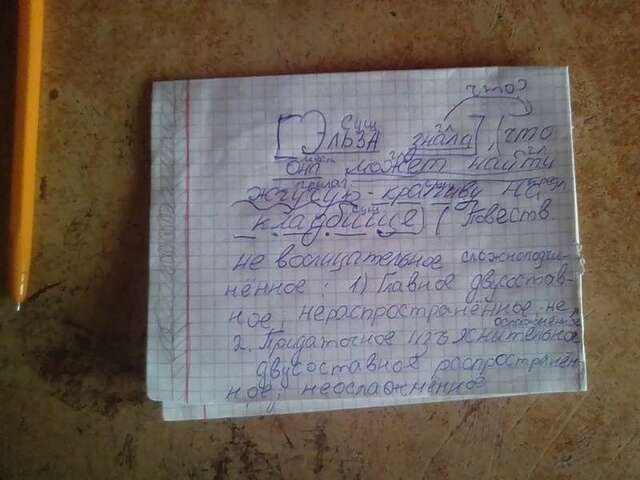 что?
сущ гл
[Эльза знала], (что
мест гл гл
она может найти
прилаг сущ предл
жгучую крапиву на
сущ
кладбище) (Повеств.
не восклицательное сложноподчи-
ненное: 1) Главное двусостав-
ное, нераспространённое не
осложненное
2. Придаточное изъяснительное
двусоставное распространен-
ное, неосложненное